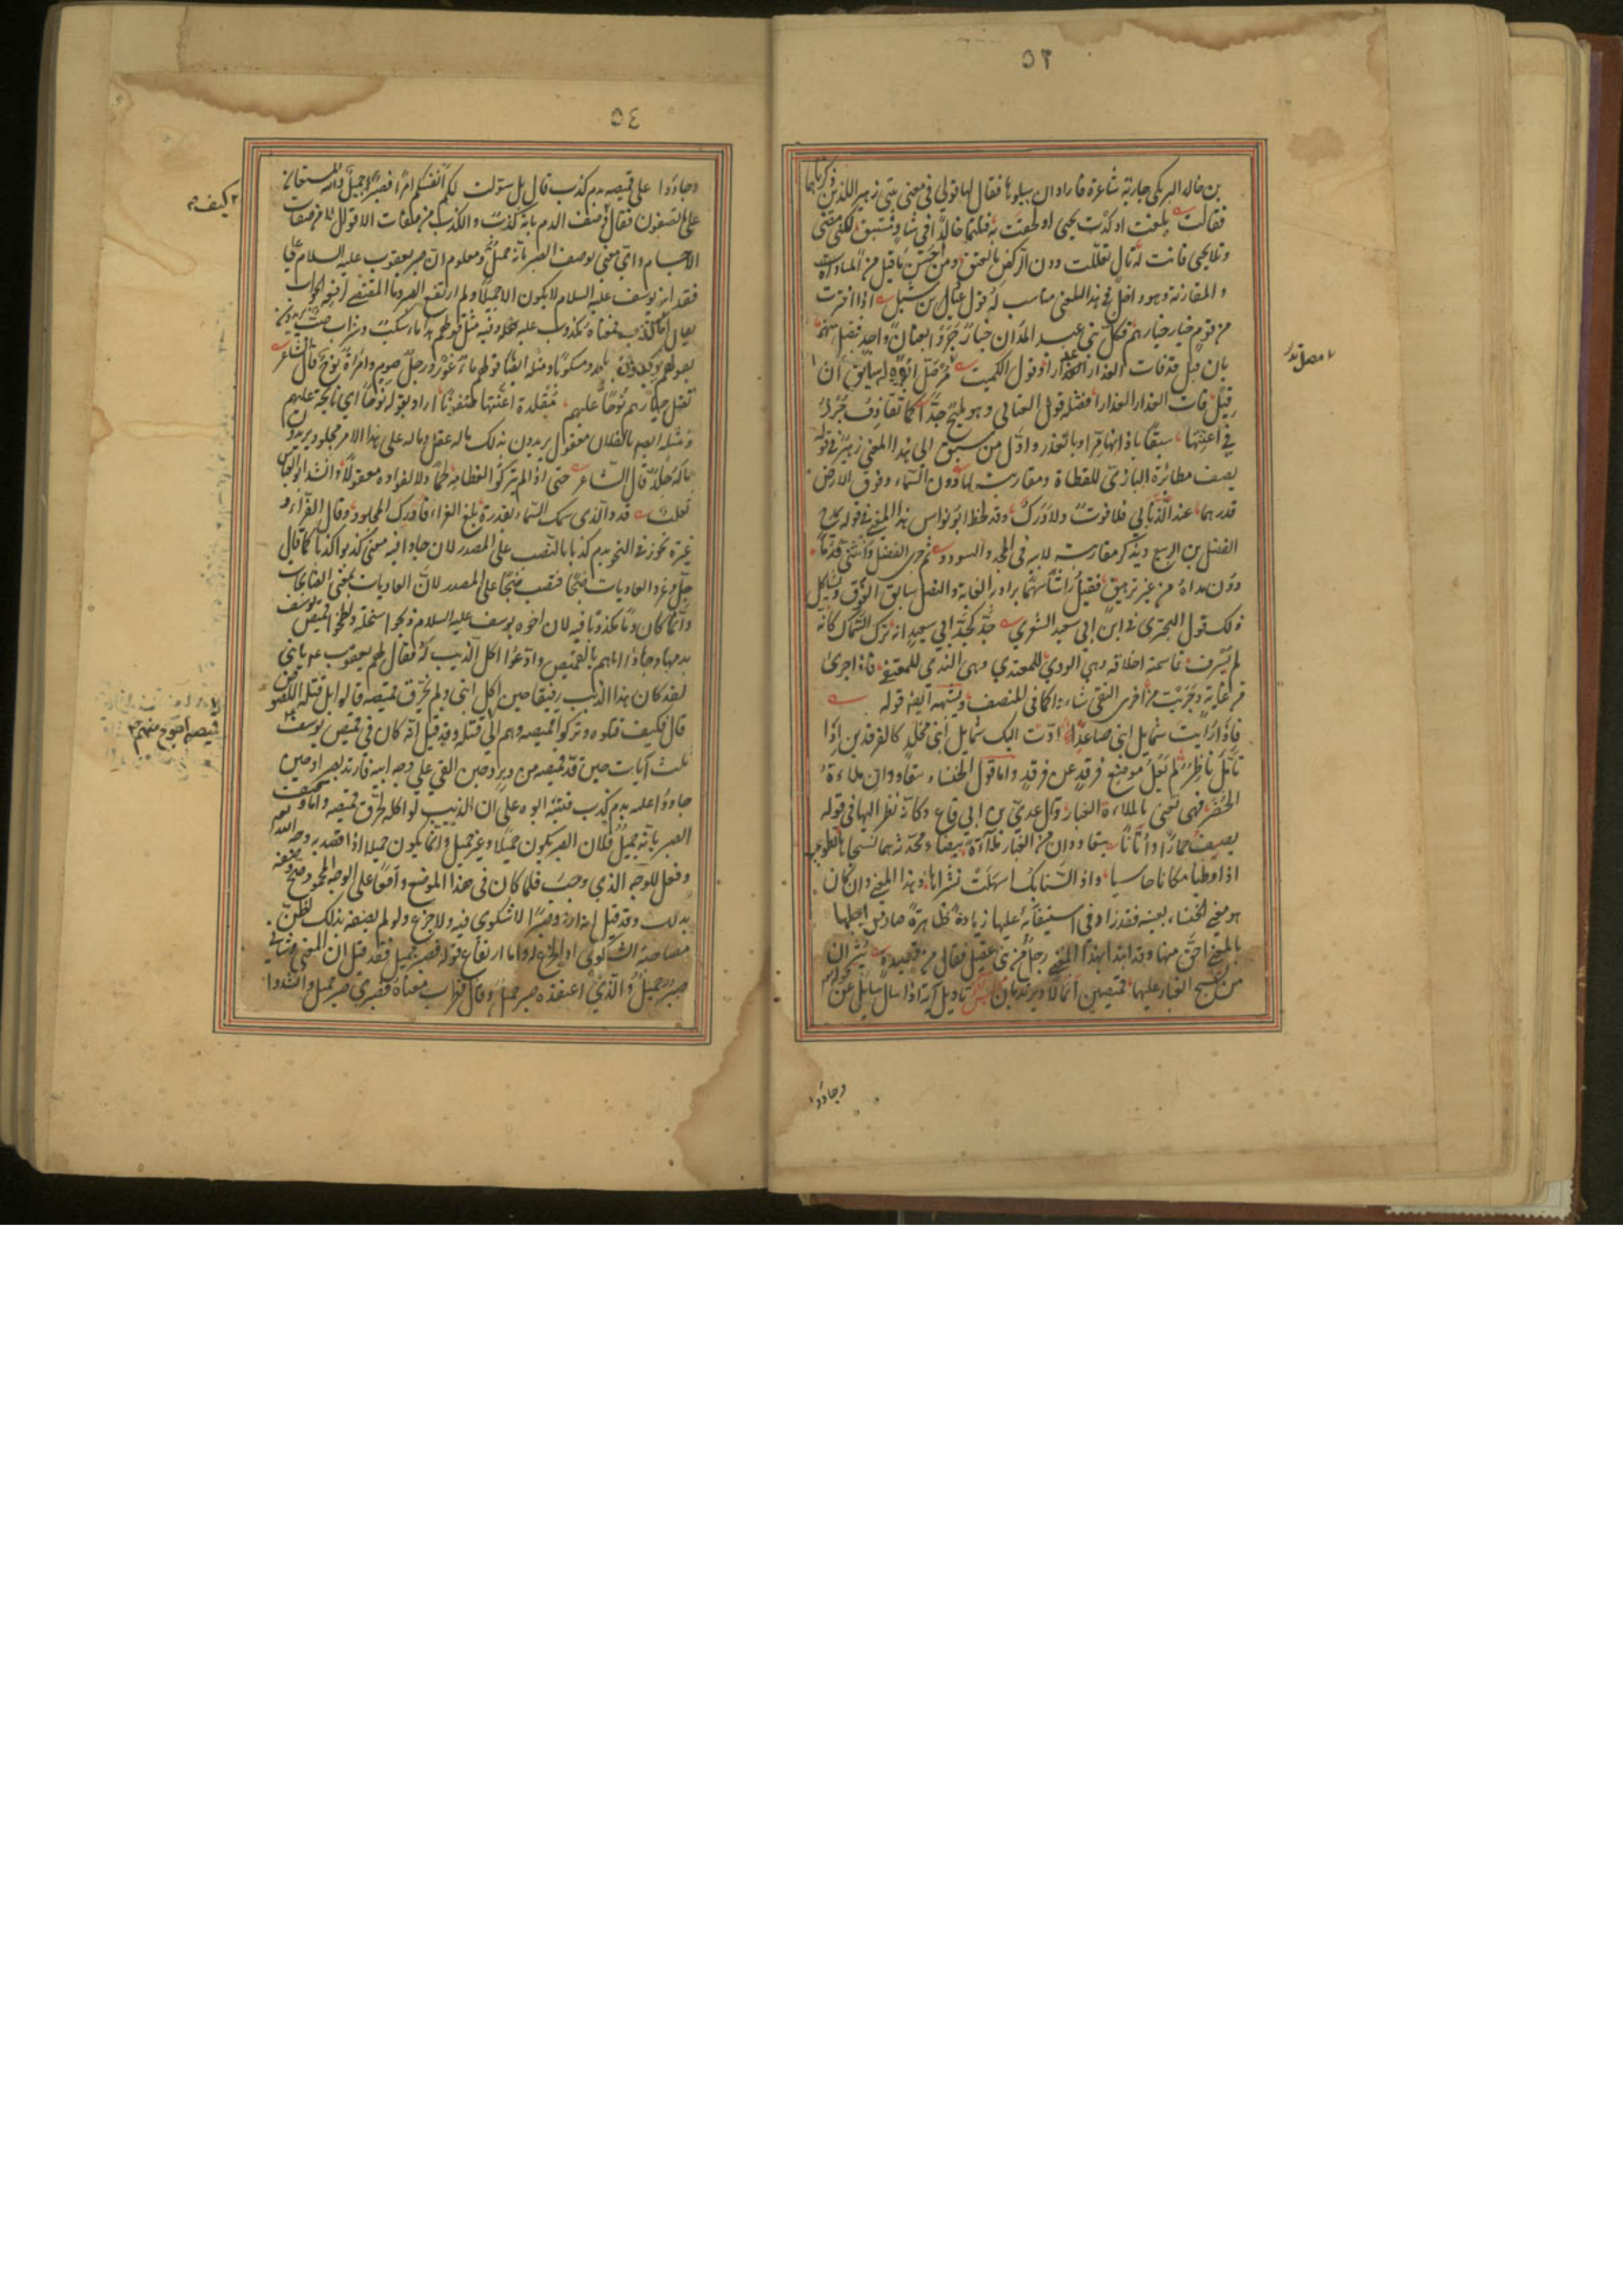 ٥٣
بن خالد البرمكي جارية شاعرة فاراد ان يبلوها فقال لها قولي في معنى بيتي زهير اللذين ذكرناهما
فقالت بلغت او كدت يحيى او لحقت به فنلتما خالدا في شاو مستبق لكن مضى
وتلا يحيى فانت له تال تعللت دون الركض بالعنق ومن حسن ما قيل من المساواة
والمقارنة وهو داخل في هذا المعنى مناسب له قول اذا اخترت
من قوم خيار خيارهم فكل بني عبد المدان خيار جروا بعنان واحد فضل بينهم
بان قيل قد فات العذار عذار او قول الكميت ما ان
قيل فات العذار العذارا فمثله قول العتابي وهو مليح جدا كما تقاذف جرد
في اعنتها سبقا باذانها مرا وبالعذر واول من سبق الى هذا المعنى زهير في قوله
يصف مطايرة البازي للقطاة ومقاربته لها دون السماء وفوق الارض
قدرهما عند الذنابي فلا فوت ولا درك وقد لحظ ابو نواس هذا المعنى في قوله يمدح
الفضل بن الربيع ويذكر مقاربته لابيه في المجد والسودد ثم جرى الفضل وانثنى قدما
دون مداه من غير ترهيق فقيل راشا سهما يراد به الغاية والنصل سابق الفوق ويشاكل
ذلك قول البحتري في ابن ابي سعيد الثغري جد كجد ابي سعيد انه ترك السماك كانه
لم يشرف قاسمته اخلاقه وهي الردي للمعتدي وهي الندي للمعتفي فاذا جرى
من غاية وجريت من اخرى التقى شاواكما في المنصف ويشبهه ايضا قوله
فاذا رايت شمايل ابني صاعد ادت اليك شمايل ابني مخلد كالفرقدين اذا
تامل ناظر لم يعل موضع فرقد عن فرقد واما قول الخنساء يتعاوران ملاءة
الحضر فهي تعني بالملاءة الغبار وكل عدي بن الرقاع وكانه نظر اليها في قوله
يصف حمارا واتانا يتعاوران من الغبار ملاءة بيضاء محدثة هما نسجاها تطوى
اذا وطئا مكانا جاسيا واذا السنابك اسهلت نشراها وهذا المعنى وان كان
هو معنى الخنساء بعينه فقد زاد في استيفائه عليها زيادة ظاهرة صار من اجلها
بالمعنى احق منها وقد ابتدا بهذا المعنى رجل من بني عقيل فقال من قصيدة يثيران
من نسج الغبار عليهما قميصين اسمالا ويرتديان تاويل آية اذا سال سايل عن قوله تعالى
وجاؤا
٥٤
وجاؤا على قميصه بدم كذب قال بل سولت لكم انفسكم امرا فصبر جميل والله المستعان
على ما تصفون فقال كيف وصف الدم بانه كذب والكذب من صفات الاقوال لا من صفات
الاجسام واي معنى لوصف الصبر بانه جميل ومعلوم ان صبر يعقوب عليه السلام على
فقد ابنه يوسف عليه السلام لا يكون الا جميلا ولم ارتفع الصبر وما المقتضي لرفعه الجواب
يقال اما كذب فمعناه مكذوب فيه وعليه مثل قولهم هذا ماء سكب وشراب صب يريدون
مسكوبا ومصبوبا ومثله ايضا قولهم ماء غور ورجل صوم وامراة نوح قال الشاعر
تظل جيادهم نوحا عليهم مقلدة اعنتها صفونا اراد بقوله نوحا اي نايحة عليهم
ومثله ايضا ما لفلان معقول يريدون بذلك ما له عقل وما له على هذا الامر مجلود يريدون
ما له جلد قال الشاعر حتى اذا لم يتركوا لعظامه لحما ولا لفواده معقولا وانشد ابو العباس
ثعلب قد والذي سمك السماء بقدرة بلغ العزاء فادرك المجلود وقال الفراء و
غيره يجوز في النحو بدم كذبا بالنصب على المصدر لان جاؤا فيه معنى كذبوا كذبا كما قال
جل وعز والعاديات ضبحا فنصب ضبحا على المصدر لان العاديات بمعنى الضابحات
وانما كان دما مكذوبا فيه لان اخوة يوسف عليه السلام ذبحوا سخلة ولطخوا قميص يوسف
بدمها وجاؤا اباهم بالقميص وادعوا اكل الذيب له فقال لهم يعقوب يا بني
لقد كان هذا الذيب رفيقا حين اكل ابني ولم يخرق قميصه قالوا بل قتله اللصوص
قال فكيف قتلوه وتركوا قميصه وهم الى قتله وقد قيل انه كان في قميص يوسف
ثلث آيات حين قد قميصه من دبر وحين القي على وجه ابيه فارتد بصيرا وحين
جاؤا عليه بدم كذب فتنبه ابوه على ان الذيب لو اكله لخرق قميصه واما وصف
الصبر بانه جميل فلان الصبر يكون جميلا وغير جميل وانما يكون جميلا اذا قصد به وجه الله
وفعل للوجه الذي وجب فلما كان في هذا الموضع واقعا على الوجه المحمود صح وصفه
بذلك وقد قيل انه اراد صبرا لا شكوى فيه ولا جزع ولو لم يصفه بذلك لظن
مصاحبة الشكوى او الجزع له واما ارتفاع قوله فصبر جميل فقد قيل ان المعنى فشاني
صبر جميل والذي اعتقده صبر جميل وقال قطرب معناه فصبري صبر جميل وانشدوا
كيف
قميصه احوج منهم